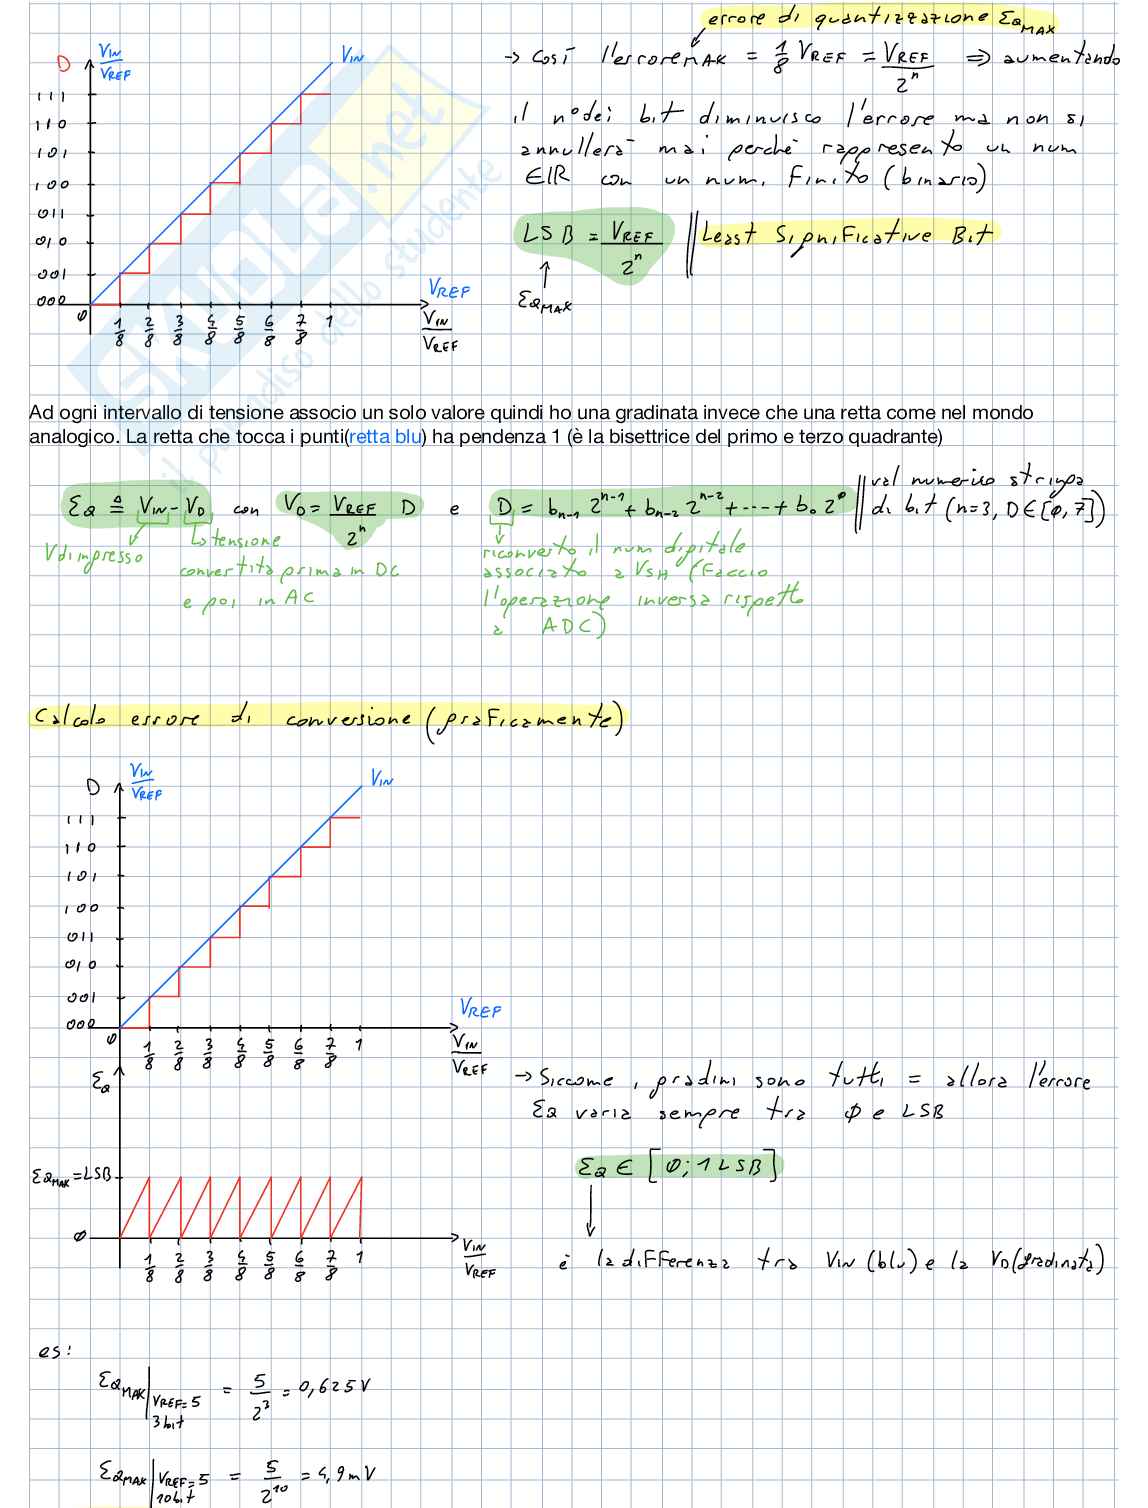 errore di quantizzazione ƐQMAX
D VIN/VREF VIN
→ Così l'errore MAX = 1/8 VREF = VREF/2^n ⇒ aumentando
il n° dei bit diminuisco l'errore ma non si
annullerà mai perchè rappresento un num
∈ℝ con un num. finito (binario)
111
110
101
100
011
010
001
000
LSB = VREF/2^n || Least Significative Bit
↑
ƐQMAX
VREF
φ 1/8 2/8 3/8 4/8 5/8 6/8 7/8 1 VIN/VREF
SKUOLA.net
il paradiso dello studente
Ad ogni intervallo di tensione associo un solo valore quindi ho una gradinata invece che una retta come nel mondo
analogico. La retta che tocca i punti(retta blu) ha pendenza 1 (è la bisettrice del primo e terzo quadrante)
ƐQ ≜ VIN - VD con VD = VREF/2^n D e D = bn-1 2^n-1 + bn-2 2^n-2 + ---- + b0 2^0 || val numerico stringa
di bit (n=3, D∈[φ,7])
V di impresso
↳ tensione
convertita prima in DC
e poi in AC
riconverto il num digitale
associato a VSH (Faccio
l'operazione inversa rispetto
a ADC)
Calcolo errore di conversione (graficamente)
D VIN/VREF VIN
111
110
101
100
011
010
001
000
VREF
φ 1/8 2/8 3/8 4/8 5/8 6/8 7/8 1 VIN/VREF
ƐQ
→ Siccome i gradini sono tutti = allora l'errore
ƐQ varia sempre tra φ e LSB
ƐQMAX = LSB
ƐQ ∈ [φ; 1 LSB]
φ
1/8 2/8 3/8 4/8 5/8 6/8 7/8 1 VIN/VREF
è la differenza tra VIN (blu) e la VD (gradinata)
es:
ƐQMAX | VREF=5 3bit = 5/2^3 = 0,625V
ƐQMAX | VREF=5 10bit = 5/2^10 = 4,9mV